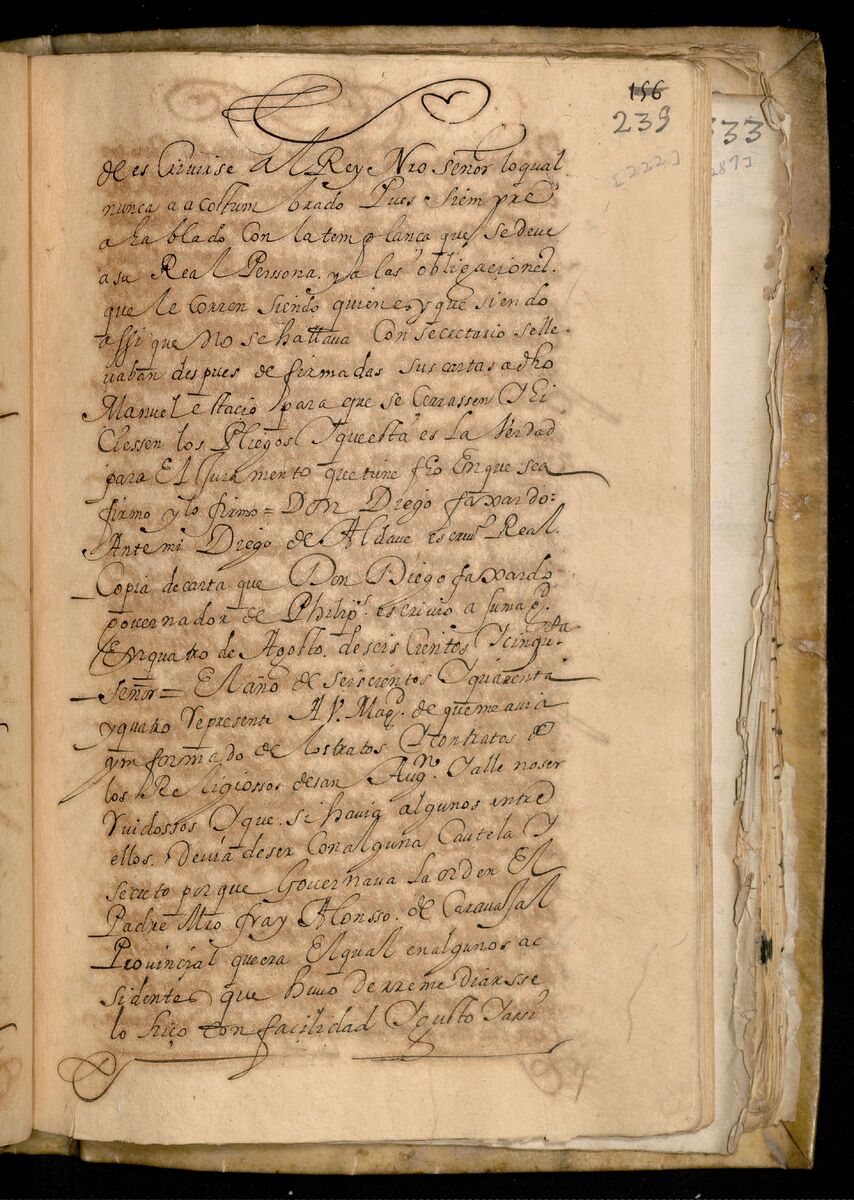 156
239
333
[222]
287]
de escriuirse al Rey Nro señor lo qual
nunca a acostumbrado Pues siempre
a hablado con la templança que se deve
a su Real Persona. y a las obligaciones.
que le corren siendo quien es, y que siendo
assi que no se hallaua con secretario se lle
uaban despues de firmadas sus cartas a dho
Manuel estacio para que se cerrassen Y hi
ciessen los Pliegos Y que esta es la Verdad
para El Juramento que tiene fho En que se a
firmo y lo firmo = Don Diego faxardo:
Ante mi Diego de Aldaue escriuº Real.
Copia de carta que Don Diego faxardo
gouernador de Philipˢ. escriuio a su magᵈ.
En quatro de Agosto. de seis cientos Y cinquᵗᵃ
Señor = El año de seiscientos Y quarenta
y quatro represente A V. Magᵈ. de que me auia
ynformado de los tratos Y contratos de
los Religiossos de san Augⁿ. Y alle no ser
Ruidossos Y que. si hauia algunos entre
ellos. Deuian de ser con alguna Cautela Y
secreto porque Gouernaua la orden El
Padre Mro fray Alonsso. de Carauajal
Prouincial que era El qual en algunos ac
sidentes que huuo de rremediarsse
lo hiço con facilidad Y gusto Y assi